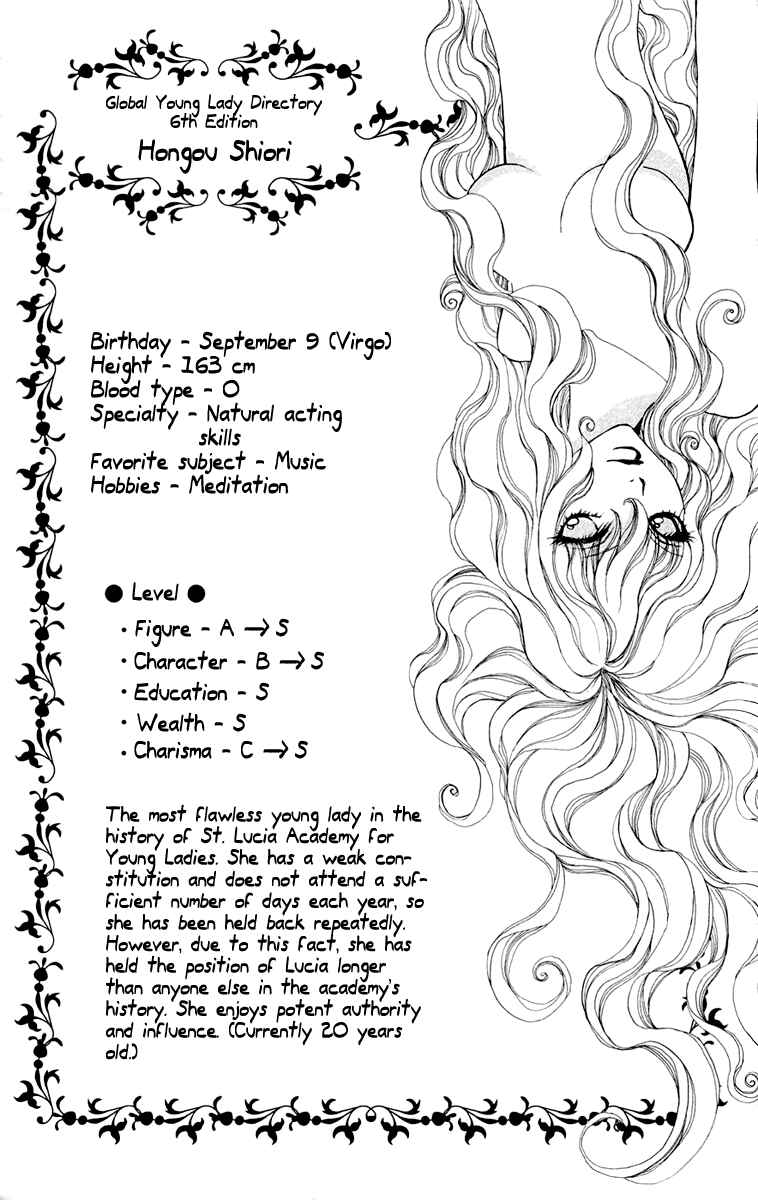 Global Young Lady Directory
6th Edition
Hongou Shiori
Birthday - September 9 (Virgo)
Height - 163 cm
Blood type - O
Specialty - Natural acting
skills
Favorite subject - Music
Hobbies - Meditation
● Level ●
• Figure - A → S
• Character - B → S
• Education - S
• Wealth - S
• Charisma - C → S
The most flawless young lady in the
history of St. Lucia Academy for
Young Ladies. She has a weak con-
stitution and does not attend a suf-
ficient number of days each year, so
she has been held back repeatedly.
However, due to this fact, she has
held the position of Lucia longer
than anyone else in the academy's
history. She enjoys potent authority
and influence. (Currently 20 years
old.)